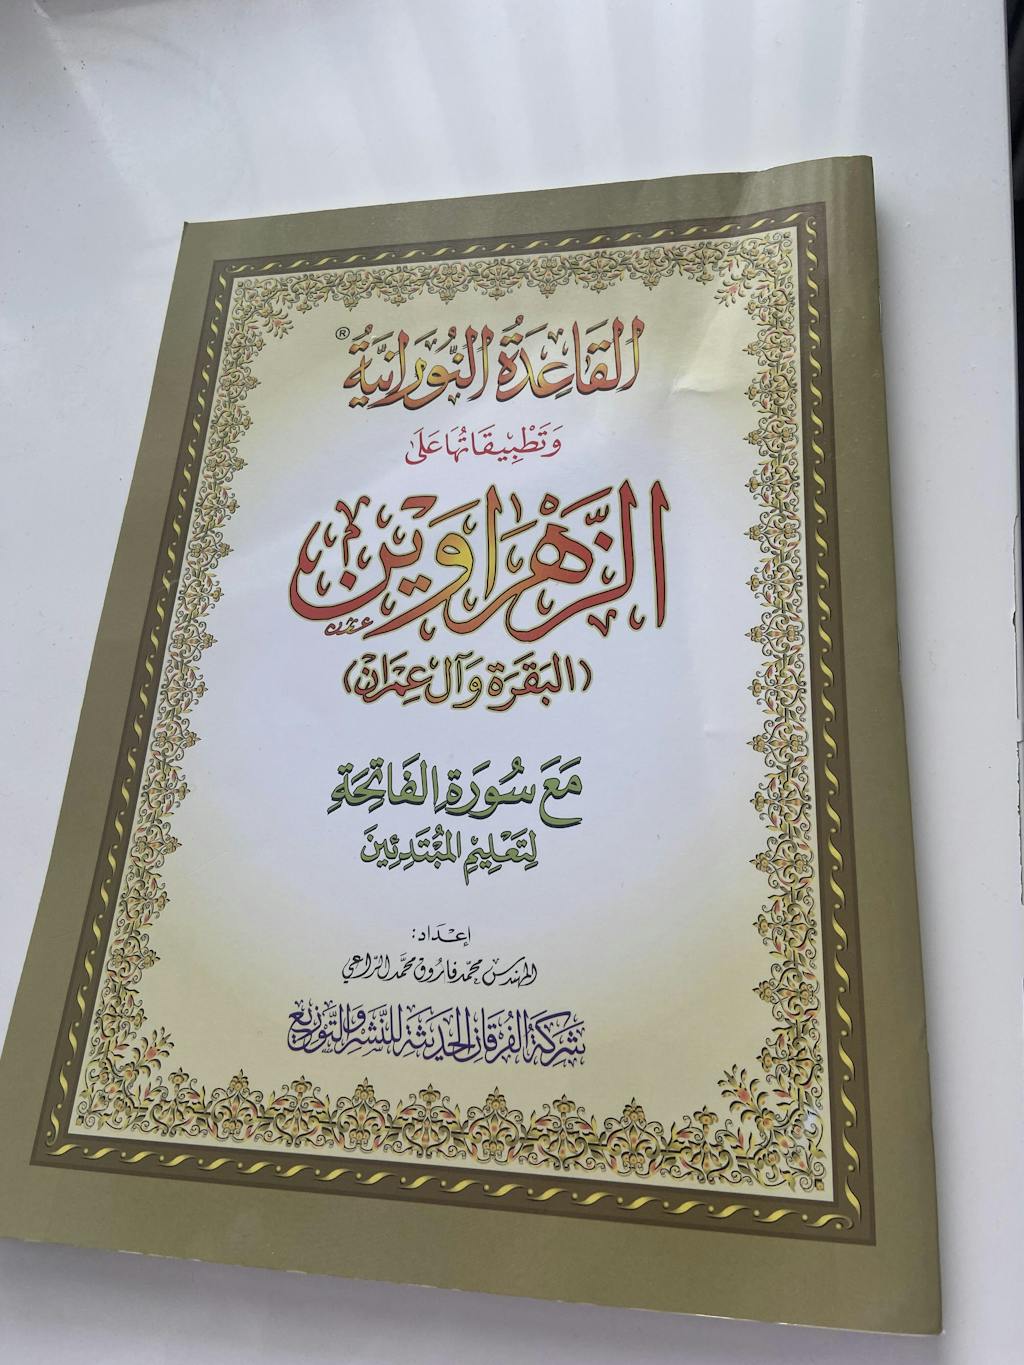 القَاعِدَةُ النُّورَانِيَّةُ ®
وَتَطْبِيقَاتُهَا عَلَى
الزَّهْرَاوَيْن
(البَقَرَة وَآل عِمْرَان)
مَعَ سُورَةِ الفَاتِحَةِ
لِتَعْلِيمِ المُبْتَدِئِينَ
إعْدَاد:
المهندس محمد فاروق محمَّد الرَّاعي
شَرِكَةُ الفُرْقَانِ الحَدِيثَةِ لِلنَّشْرِ وَالتَّوْزِيعِ